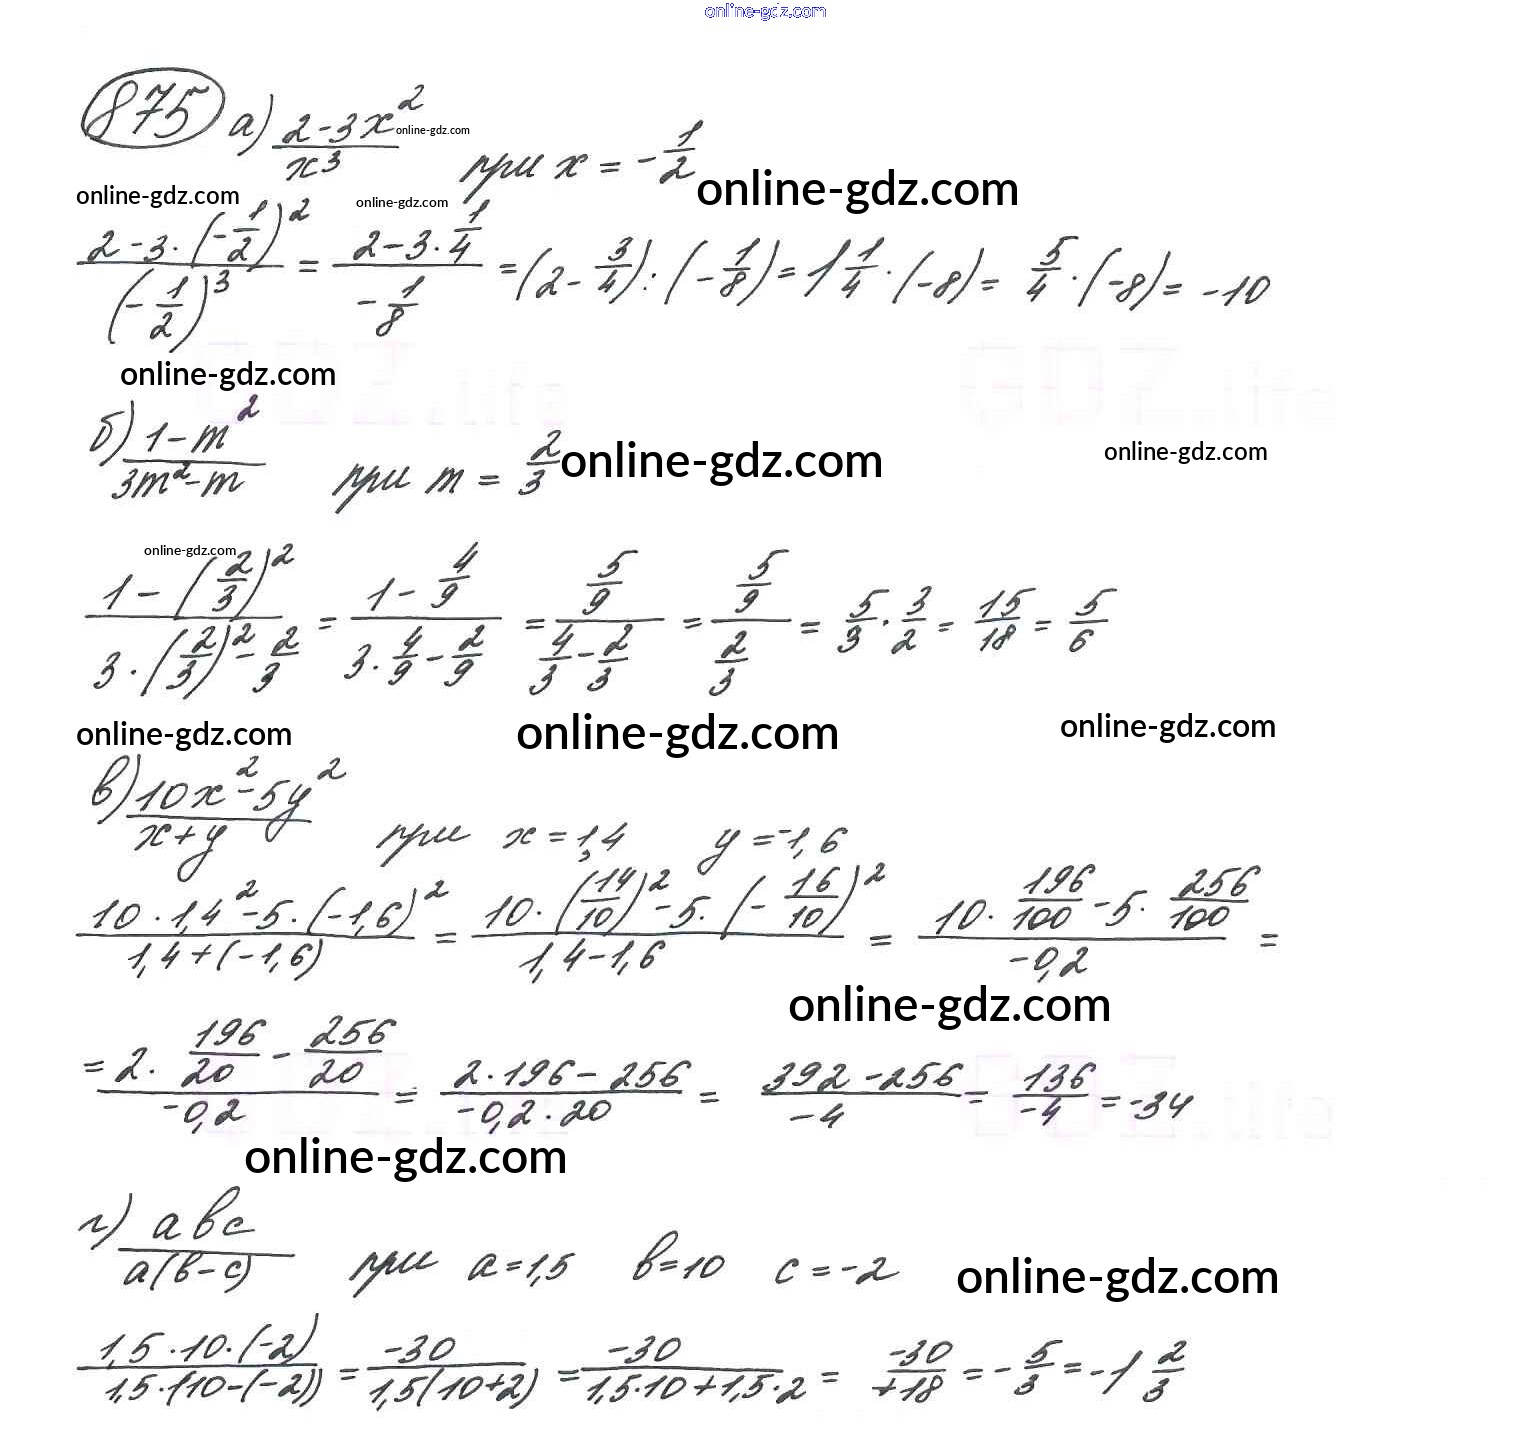 online-gdz.com
875 а) (2-3x²)/x³ при x = -1/2
online-gdz.com
online-gdz.com
online-gdz.com
online-gdz.com
(2-3·(-1/2)²)/(-1/2)³ = (2-3·1/4)/(-1/8) = (2-3/4):(-1/8) = 1 1/4·(-8) = 5/4·(-8) = -10
online-gdz.com
б) (1-m²)/(3m²-m) при m = 2/3
online-gdz.com
online-gdz.com
online-gdz.com
(1-(2/3)²)/(3·(2/3)²-2/3) = (1-4/9)/(3·4/9-2/9) = (5/9)/(4/3-2/3) = (5/9)/(2/3) = 5/3·3/2 = 15/18 = 5/6
online-gdz.com
online-gdz.com
online-gdz.com
в) (10x²-5y²)/(x+y) при x = 1,4 y = -1,6
(10·1,4²-5·(-1,6)²)/(1,4+(-1,6)) = (10·(14/10)²-5·(-16/10)²)/(1,4-1,6) = (10·196/100-5·256/100)/(-0,2) =
online-gdz.com
= (2·196/20-256/20)/(-0,2) = (2·196-256)/(-0,2·20) = (392-256)/(-4) = 136/(-4) = -34
online-gdz.com
г) abc/(a(b-c)) при a = 1,5 b = 10 c = -2
online-gdz.com
(1,5·10·(-2))/(1,5·(10-(-2))) = -30/(1,5(10+2)) = -30/(1,5·10+1,5·2) = -30/(+18) = -5/3 = -1 2/3